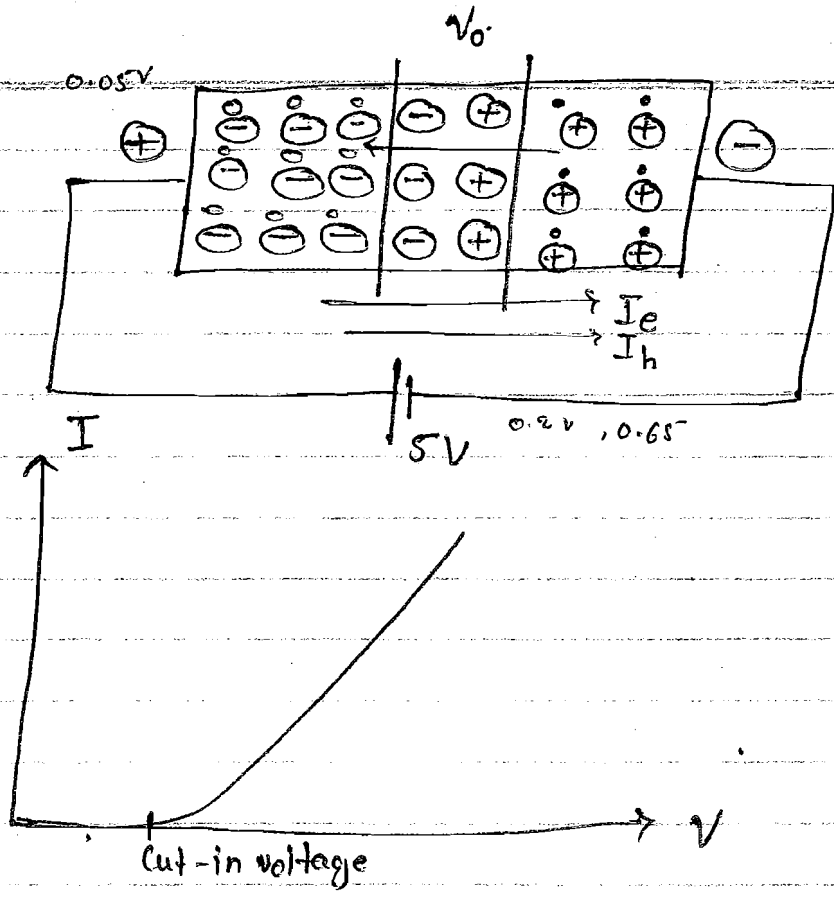 V₀.
0.05V
+ -
- - - - +  + +
- - - - +  + +
- - - - +  + +
Ie
Ih
5V
0.2 v , 0.65
I
V
Cut-in voltage